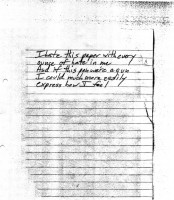 I hate this paper with every
ounce of hate in me
And if this pen were a gun
I could much more easily
express how I feel